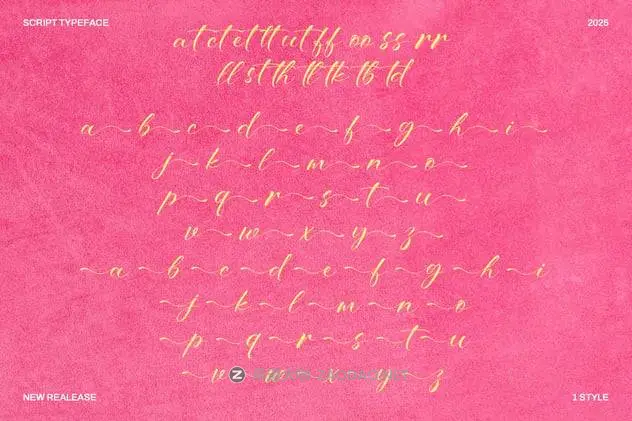 SCRIPT TYPEFACE
2025
at ct et tt ut ff oo ss rr
ll st th tl tk tb td
a b c d e f g h i
j k l m n o
p q r s t u
v w x y z
a b c d e f g h i
j k l m n o
p q r s t u
v w x y z
NEW REALEASE
1 STYLE